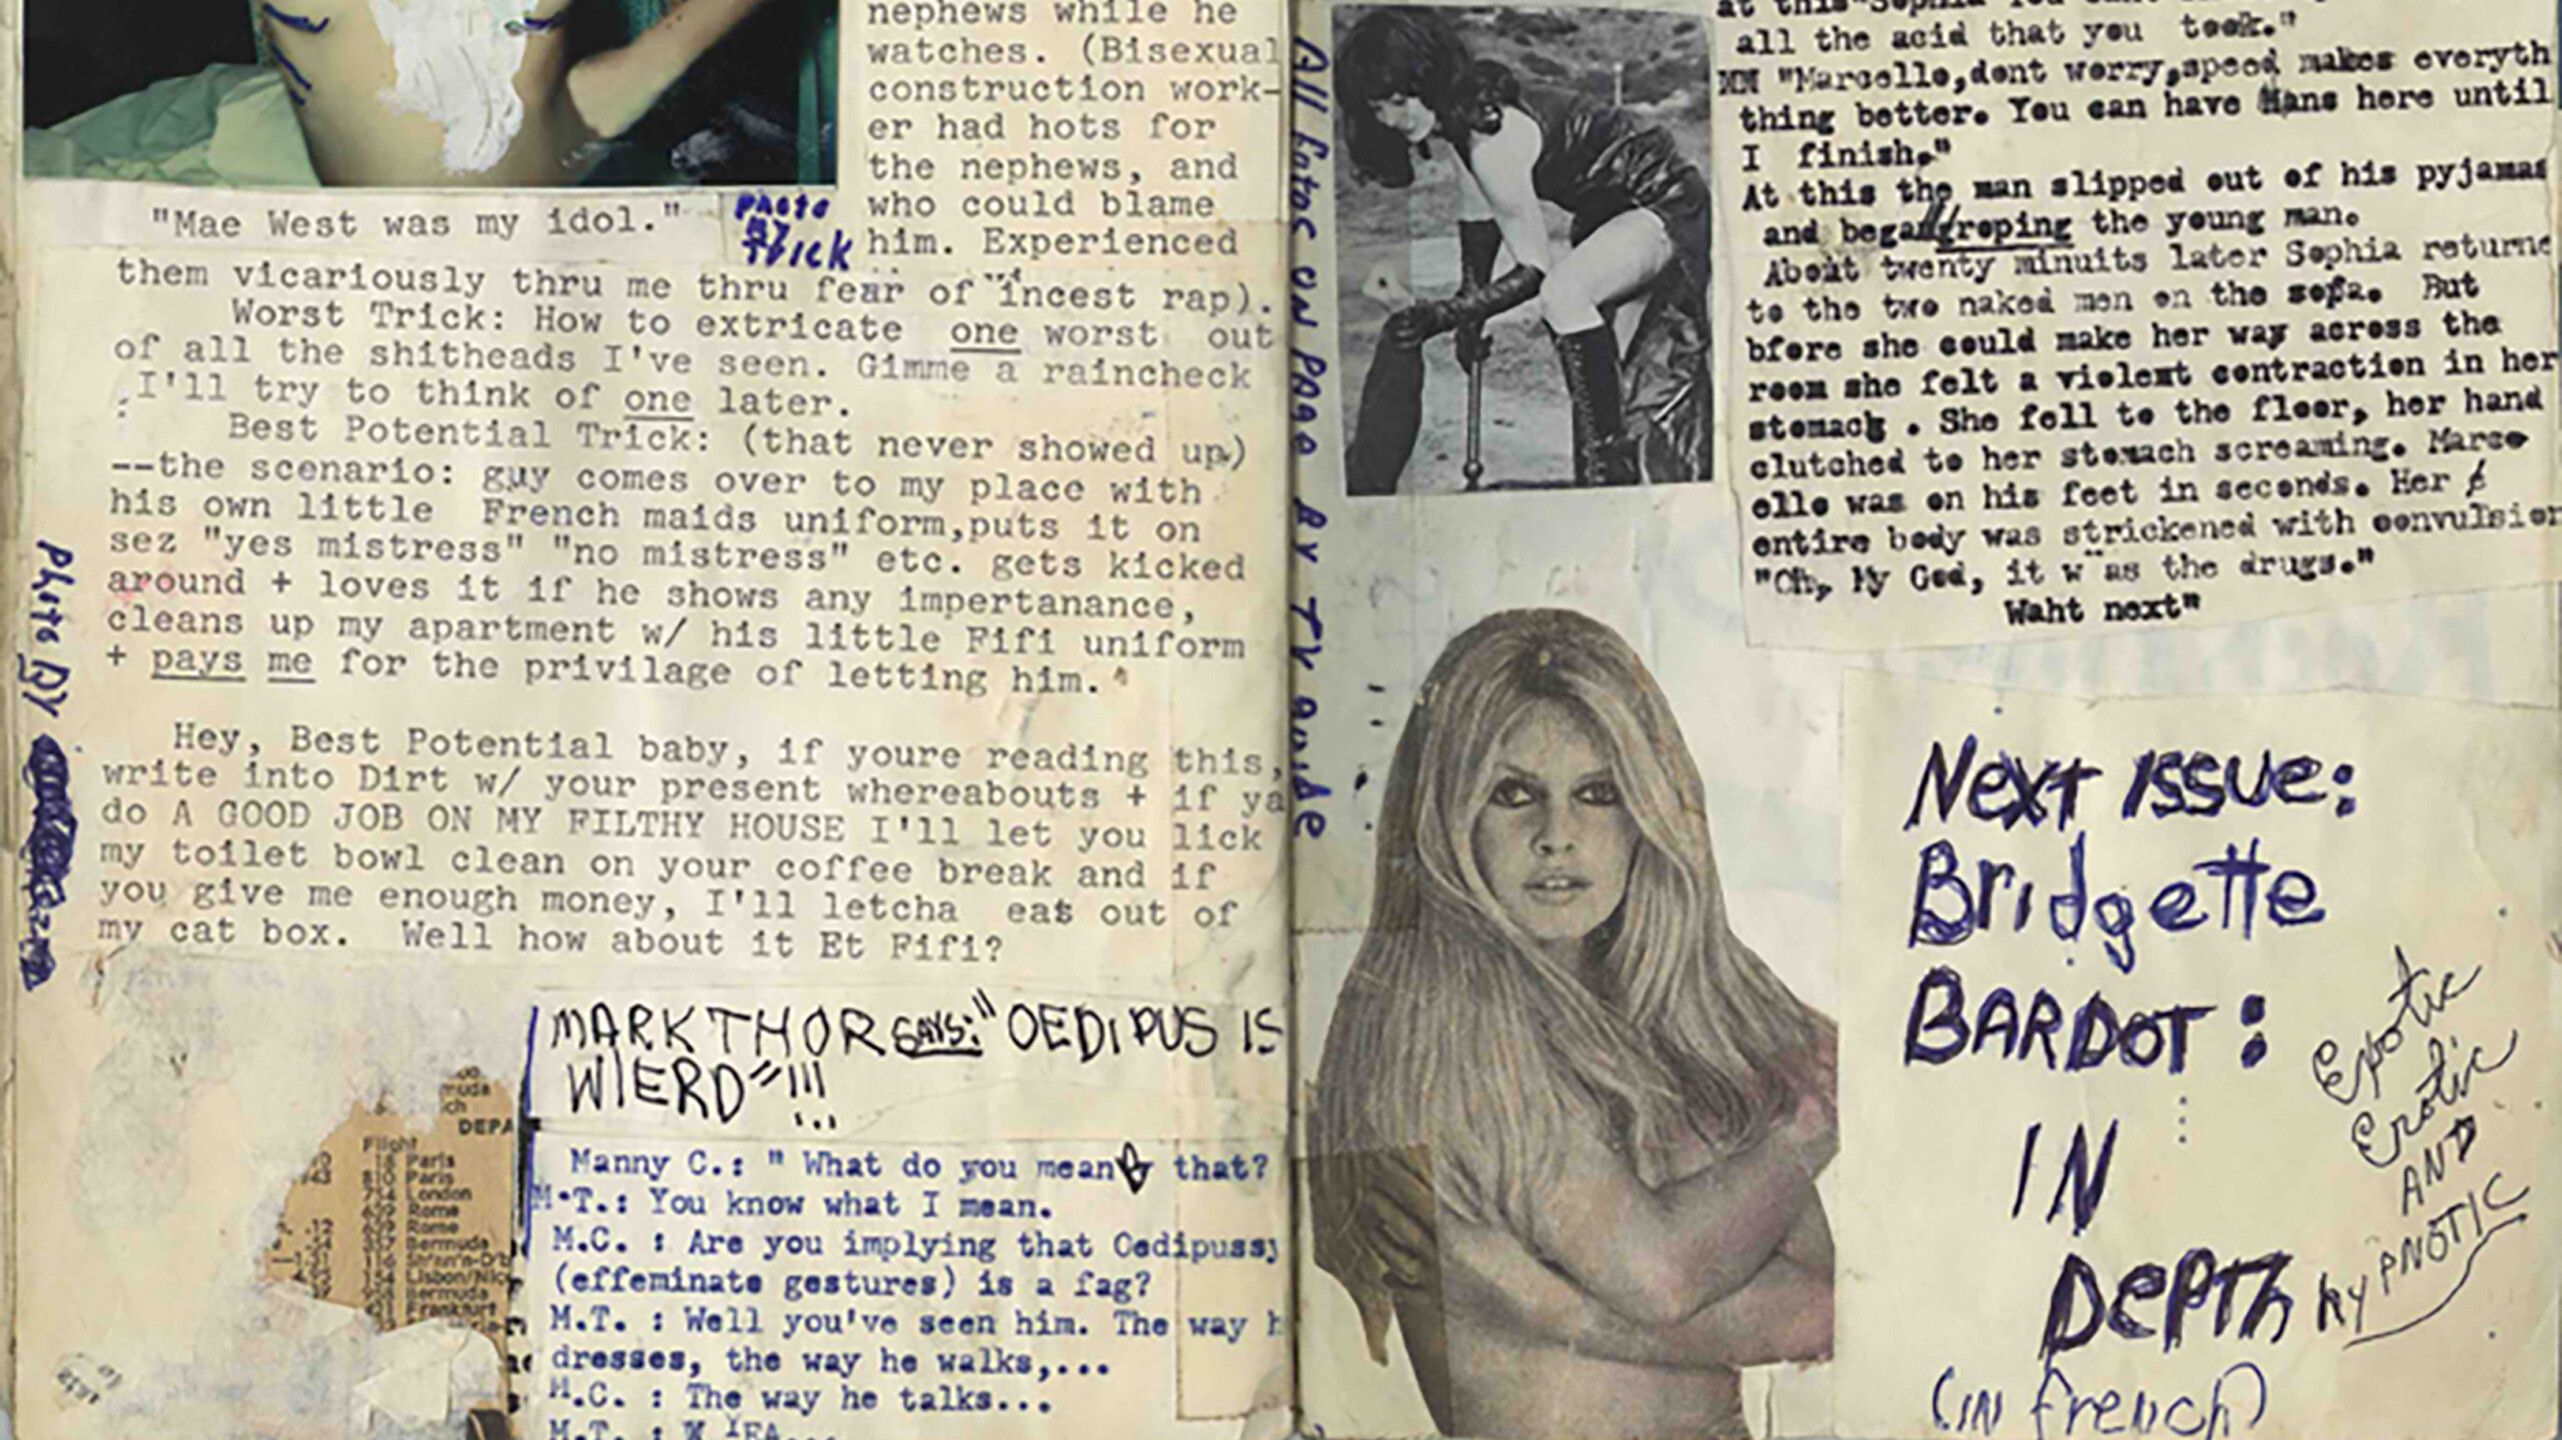 nephews while he
watches. (Bisexual
construction work-
er had hots for
the nephews, and
who could blame
him. Experienced
"Mae West was my idol."
Photo
BY
Trick
them vicariously thru me thru fear of incest rap).
Worst Trick: How to extricate one worst out
of all the shitheads I've seen. Gimme a raincheck
I'll try to think of one later.
Best Potential Trick: (that never showed up)
--the scenario: guy comes over to my place with
his own little French maids uniform,puts it on
sez "yes mistress" "no mistress" etc. gets kicked
around + loves it if he shows any impertanance,
cleans up my apartment w/ his little Fifi uniform
+ pays me for the privilage of letting him."
Hey, Best Potential baby, if youre reading this,
write into Dirt w/ your present whereabouts + if ya
do A GOOD JOB ON MY FILTHY HOUSE I'll let you lick
my toilet bowl clean on your coffee break and if
you give me enough money, I'll letcha eat out of
my cat box. Well how about it Et Fifi?
Photo BY
MARK THOR SAYS: "OEDIPUS IS
WIERD"!!!
Manny C.: " What do you mean by that?
M.T.: You know what I mean.
M.C. : Are you implying that Oedipussy
(effeminate gestures) is a fag?
M.T. : Well you've seen him. The way h
dresses, the way he walks,...
M.C. : The way he talks...
M.T. :
DEPA
Flight
18 Paris
810 Paris
754 London
609 Rome
609 Rome
Bermuda
116
154 Lisbon/Nice
958 Bermuda
421 Frankfurt
All Fotos ON PAGE BY TV guide
all the acid that you took."
MM "Marcello,dont worry,speed makes everyth
thing better. You can have Hans here until
I finish."
At this the man slipped out of his pyjamas
and began groping the young man.
About twenty minuits later Sophia returne
to the two naked men on the sofa. But
bfore she could make her way across the
room she felt a violent contraction in her
stomack . She fell to the floor, her hand
clutched to her stomach screaming. Marce
ello was on his feet in seconds. Her
entire body was strickened with convulsion
"Oh, My God, it w as the drugs."
Waht next"
Next ISSUE:
Bridgette
BARDOT:
IN
DEPTh
(IN french)
Exotic
Erotic
AND
hyPNOTIC